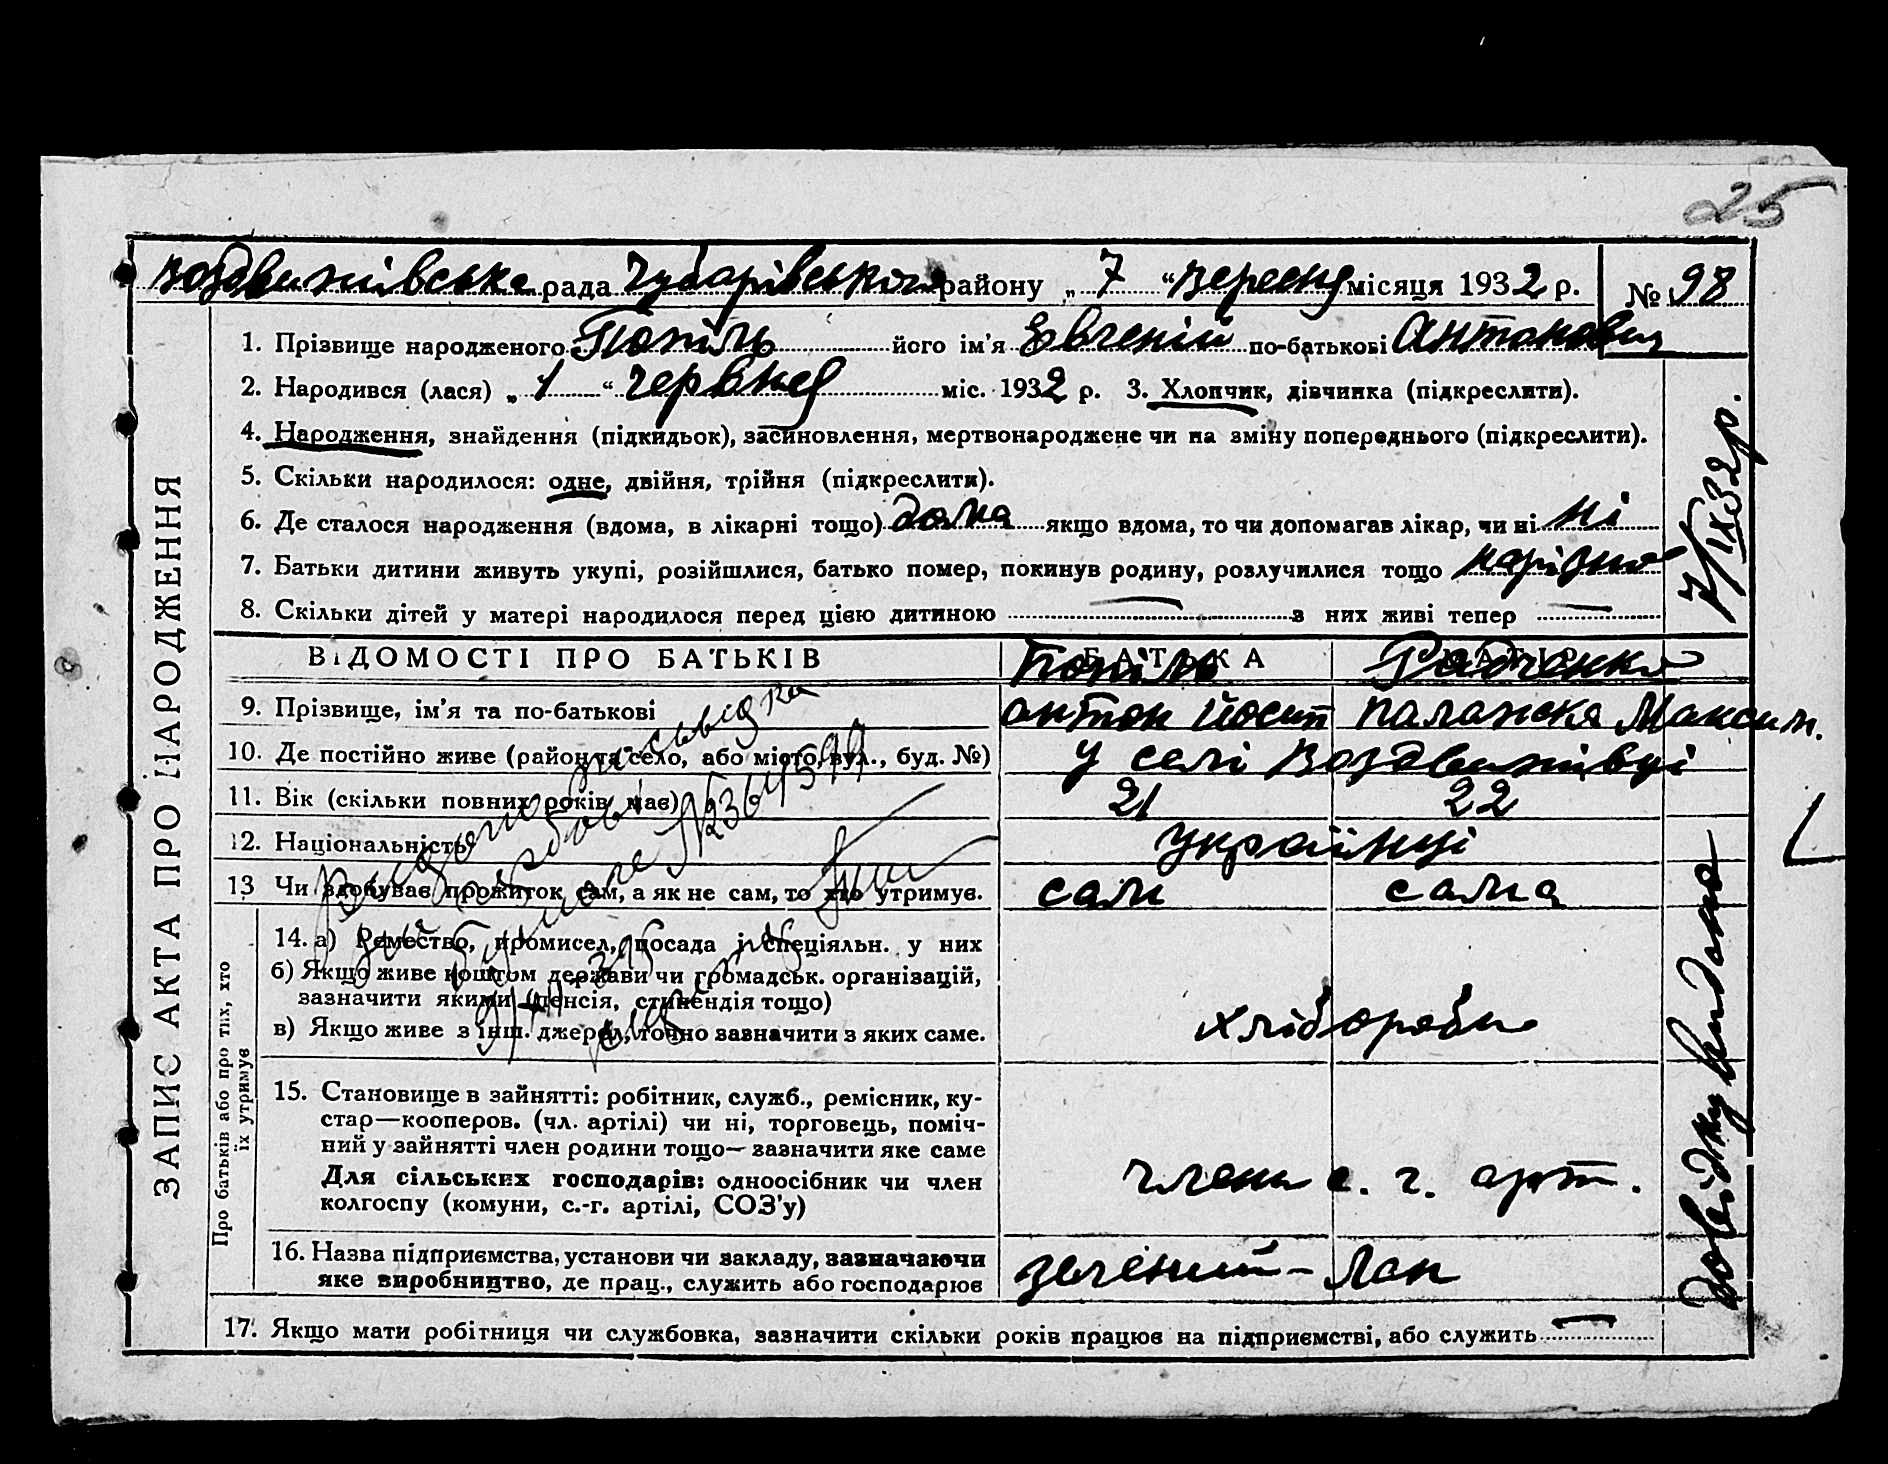 25
Воздвижівська рада Чубарівського району „ 7 “ Вересня місяця 1932 р. № 98
1. Прізвище народженого Попіль його ім'я Євгеній по-батькові Антонович
2. Народився (лася) „ 1 “ червня міс. 1932 р. 3. Хлопчик, дівчинка (підкреслити).
4. Народження, знайдення (підкидьок), засиновлення, мертвонароджене чи на зміну попереднього (підкреслити).
5. Скільки народилося: одне, двійня, трійня (підкреслити).
6. Де сталося народження (вдома, в лікарні тощо) дома якщо вдома, то чи допомагав лікар, чи ні ні
7. Батьки дитини живуть укупі, розійшлися, батько помер, покинув родину, розлучилися тощо нарізно
8. Скільки дітей у матері народилося перед цією дитиною — з них живі тепер —
ЗАПИС АКТА ПРО НАРОДЖЕННЯ
ВІДОМОСТІ ПРО БАТЬКІВ БАТЬКА МАТІР
Попіль
9. Прізвище, ім'я та по-батькові антон Йосип паланскя Максим.
10. Де постійно живе (район та село, або місто, вул., буд. №) у селі Воздвижівці
11. Вік (скільки повних років має) 21 22
12. Національність українці
13 Чи здобуває прожиток сам, а як не сам, то хто утримує. сам сама
Про батьків або про тих, хто їх утримує
14. а) Ремество, промисел, посада і спеціяльн. у них
б) Якщо живе коштом держави чи громадськ. організацій,
зазначити якими (пенсія, стипендія тощо)
в) Якщо живе з інш. джерел, точно зазначити з яких саме.
хлібороби
15. Становище в зайнятті: робітник, служб., ремісник, ку-
стар—кооперов. (чл. артілі) чи ні, торговець, поміч-
ний у зайнятті член родини тощо— зазначити яке саме
Для сільських господарів: одноосібник чи член
колгоспу (комуни, с.-г. артілі, СОЗ'у)
члени с. г. арт.
16. Назва підприємства, установи чи закладу, зазначаючи
яке виробництво, де прац., служить або господарює
зелений – Лан
17. Якщо мати робітниця чи службовка, зазначити скільки років працює на підприємстві, або служить —
довідку видано
7/IX32р.